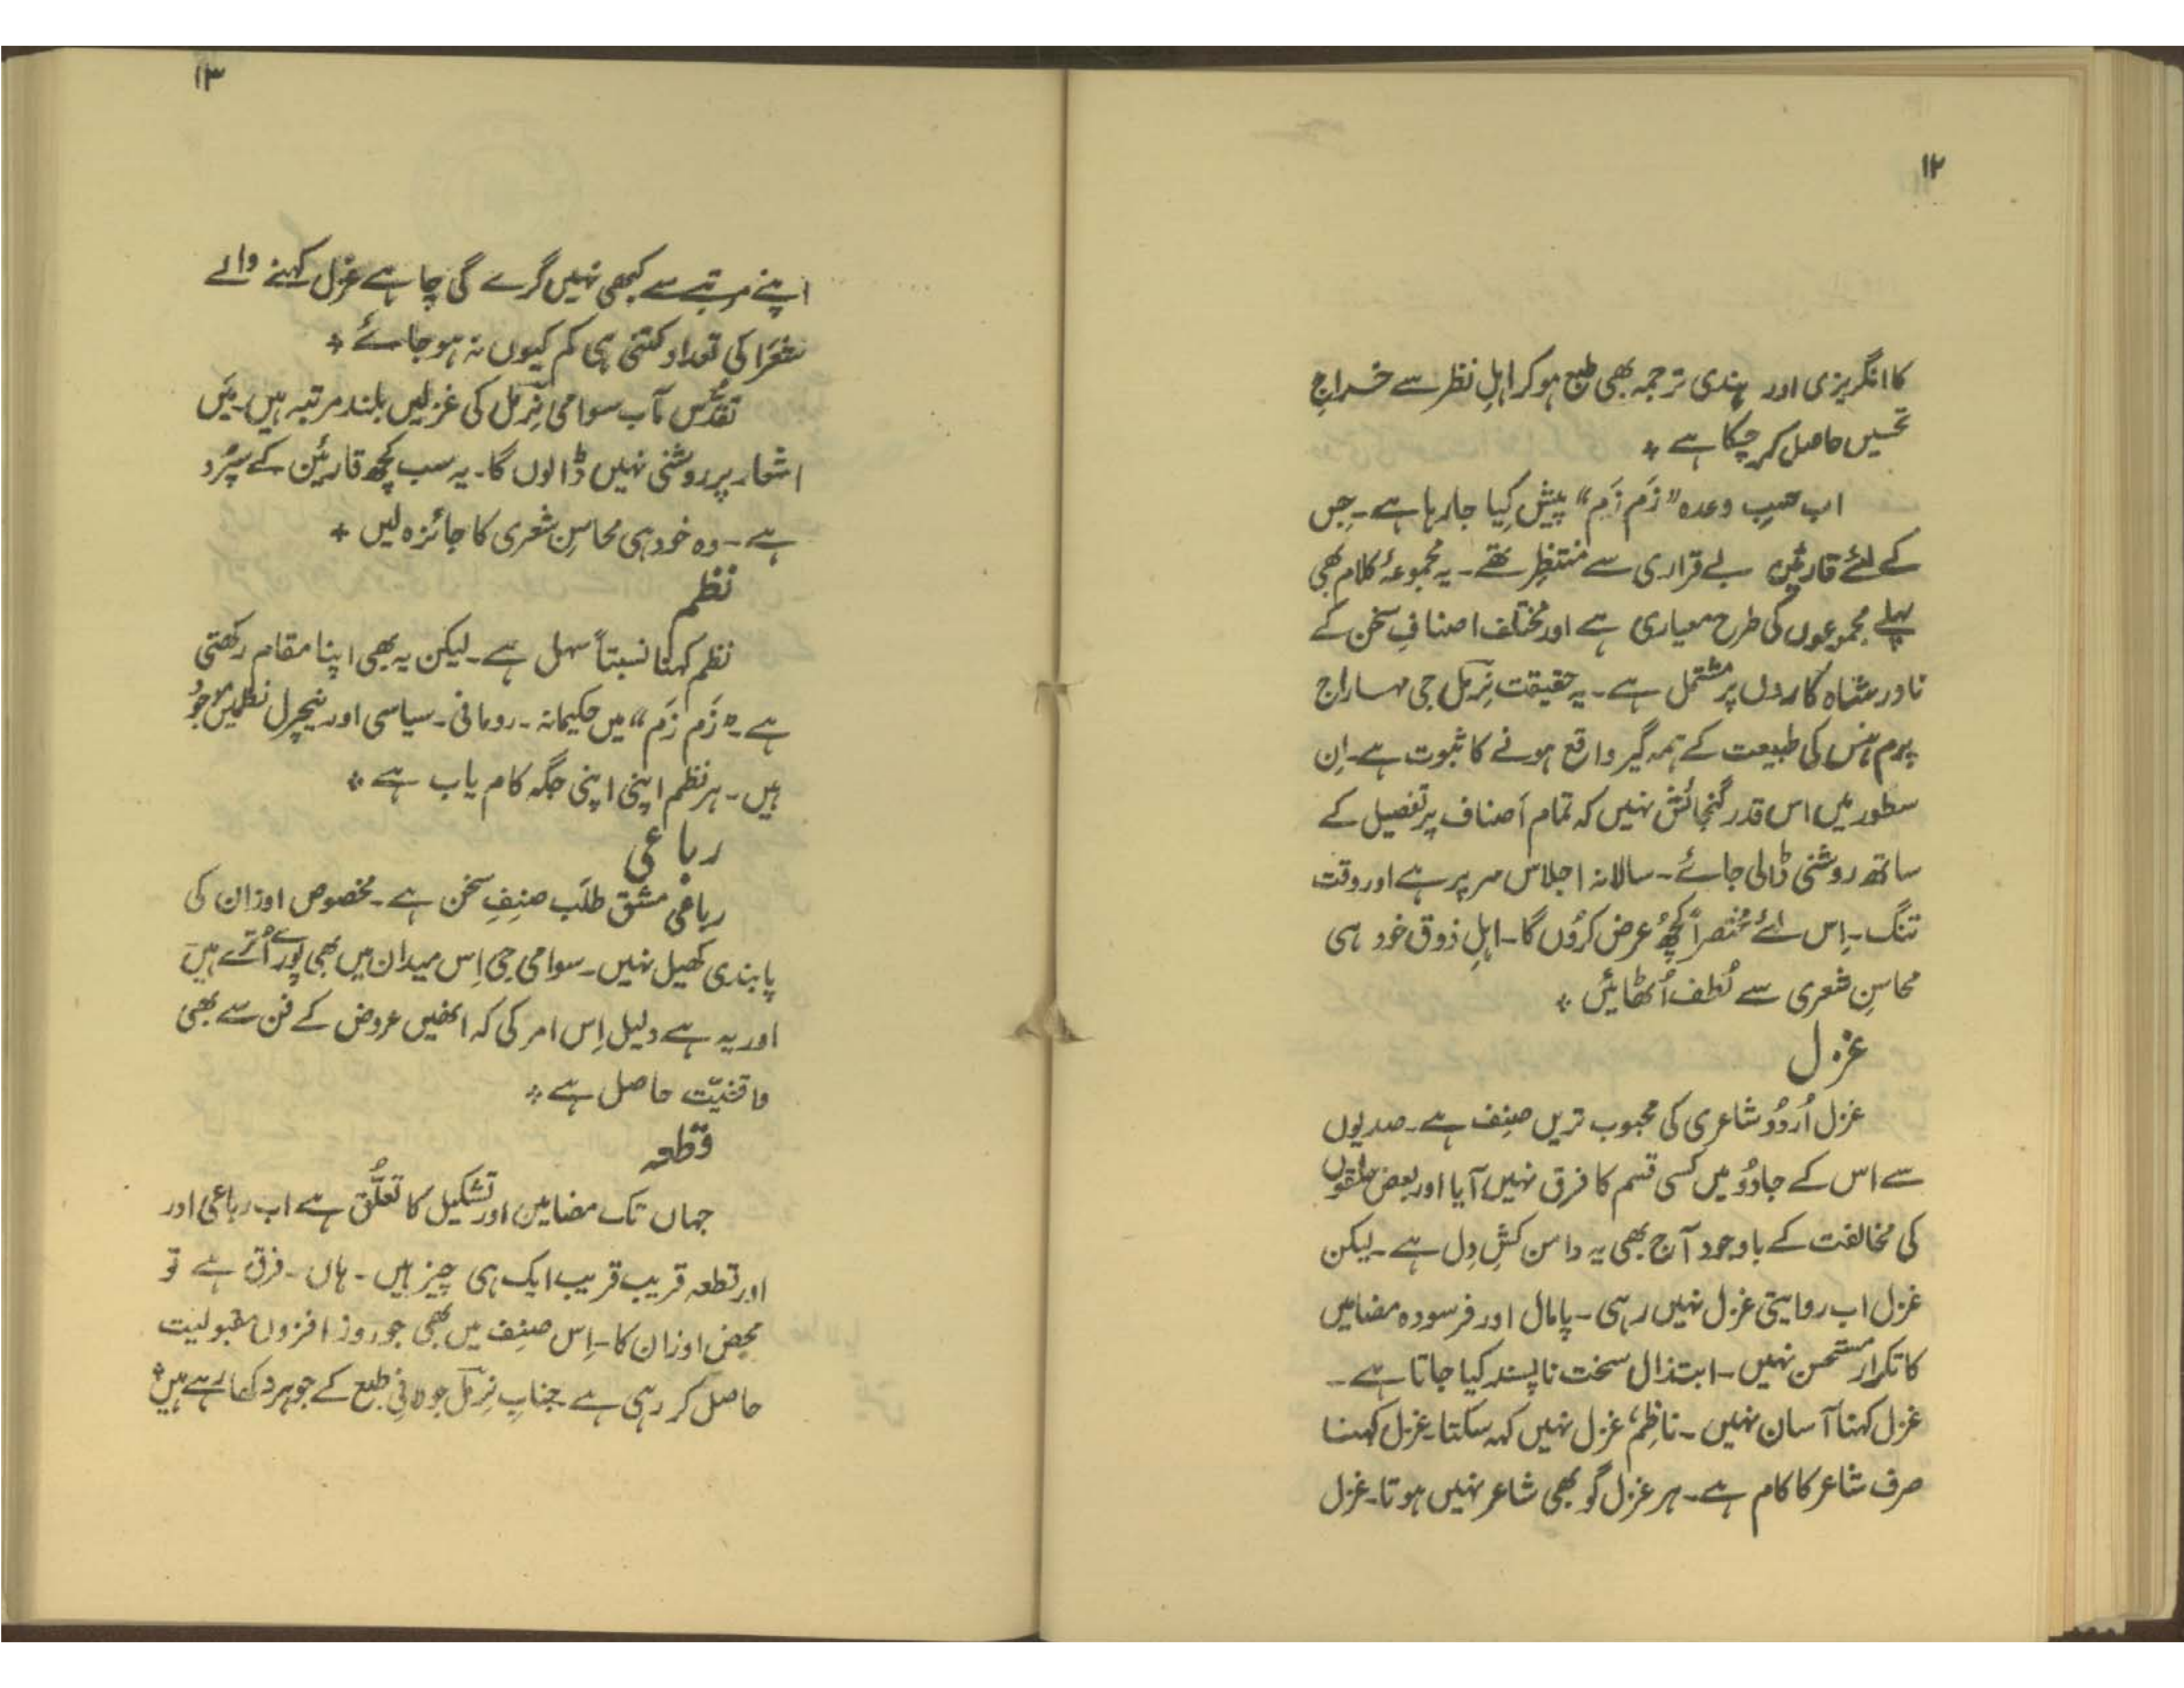 ۱۲
کا انگریزی اور ہندی ترجمہ بھی طبع ہوکر اہلِ نظر سے خراجِ
تحسیں حاصل کر چکا ہے ٭
اب حسبِ وعدہ "زَم زَم" پیش کِیا جا رہا ہے۔ جِس
کے لئے قارئین بے قراری سے منتظِر تھے۔ یہ مجموعۂ کلام بھی
پہلے مجموعوں کی طرح معیاری ہے اور مختلف اصنافِ سخن کے
نادر شاہ کاروں پر مشتمل ہے۔ یہ حقیقت نِرمل جی مہاراج
پرم ہنس کی طبیعت کے ہمہ گیر واقع ہونے کا ثبوت ہے۔ اِن
سطور میں اس قدر گنجائش نہیں کہ تمام اَصناف پر تفصیل کے
ساتھ روشنی ڈالی جائے۔ سالانہ اجلاس سر پر ہے اور وقت
تنگ۔ اِس لئے مختصراً کچھُ عرض کرُوں گا۔ اہلِ ذوق خود ہی
محاسنِ شعری سے لُطف اُٹھائیں ٭
غزل
غزل اُردُو شاعری کی محبوب تریں صِنف ہے۔ صدیوں
سے اس کے جادُو میں کسی قسم کا فرق نہیں آیا اور بعض حلقوں
کی مخالفت کے باوجود آج بھی یہ دامن کشِ دِل ہے۔ لیکن
غزل اب روایتی غزل نہیں رہی۔ پامال اور فرسودہ مضامیں
کا تکرار مستحسن نہیں۔ ابتذال سخت ناپسند کیا جاتا ہے۔
غزل کہنا آسان نہیں۔ ناظِم، غزل نہیں کہہ سکتا۔ غزل کہنا
صرف شاعر کا کام ہے۔ ہر غزل گو بھی شاعر نہیں ہوتا۔ غزل
۱۳
اپنے مرتبے سے کبھی نہیں گرے گی چاہے غزل کہنے والے
شعَرا کی تعداد کتنی ہی کم کیوں نہ ہو جائے ٭
تقدُّس مآب سوامی نِرمل کی غزلیں بلند مرتبہ ہیں۔ مَیں
اشعار پر روشنی نہیں ڈالوں گا۔ یہ سب کچھ قارئین کے سپُرد
ہے۔ وہ خود ہی محاسِنِ شعری کا جائزہ لیں ٭
نظم
نظم کہنا نسبتاً سہل ہے۔ لیکن یہ بھی اپنا مقام رکھتی
ہے۔ "زَم زَم" میں حکیمانہ۔ رومانی۔ سیاسی اور نیچرل نظمیں موجُود
ہیں۔ ہر نظم اپنی اپنی جگہ کام یاب ہے ٭
رباعی
رباعی مشق طلَب صنِفِ سخن ہے۔ مخصوص اوزان کی
پابندی کھیل نہیں۔ سوامی جی اِس میدان میں بھی پُورے اُترے ہیں
اور یہ ہے دلیل اِس امر کی کہ انھیں عروض کے فن سے بھی
واقفیّت حاصل ہے ٭
قطعہ
جہاں تک مضامین اور تشکیل کا تعلُّق ہے اب رباعی اور
اور قطعہ قریب قریب ایک ہی چیز ہیں۔ ہاں۔ فرق ہے تو
محض اوزان کا۔ اِس صِنف میں بھی جو روز افزوں مقبولیت
حاصل کر رہی ہے جنابِ نِرمل جولانیٔ طبع کے جوہر دکھا رہے ہیں ٭